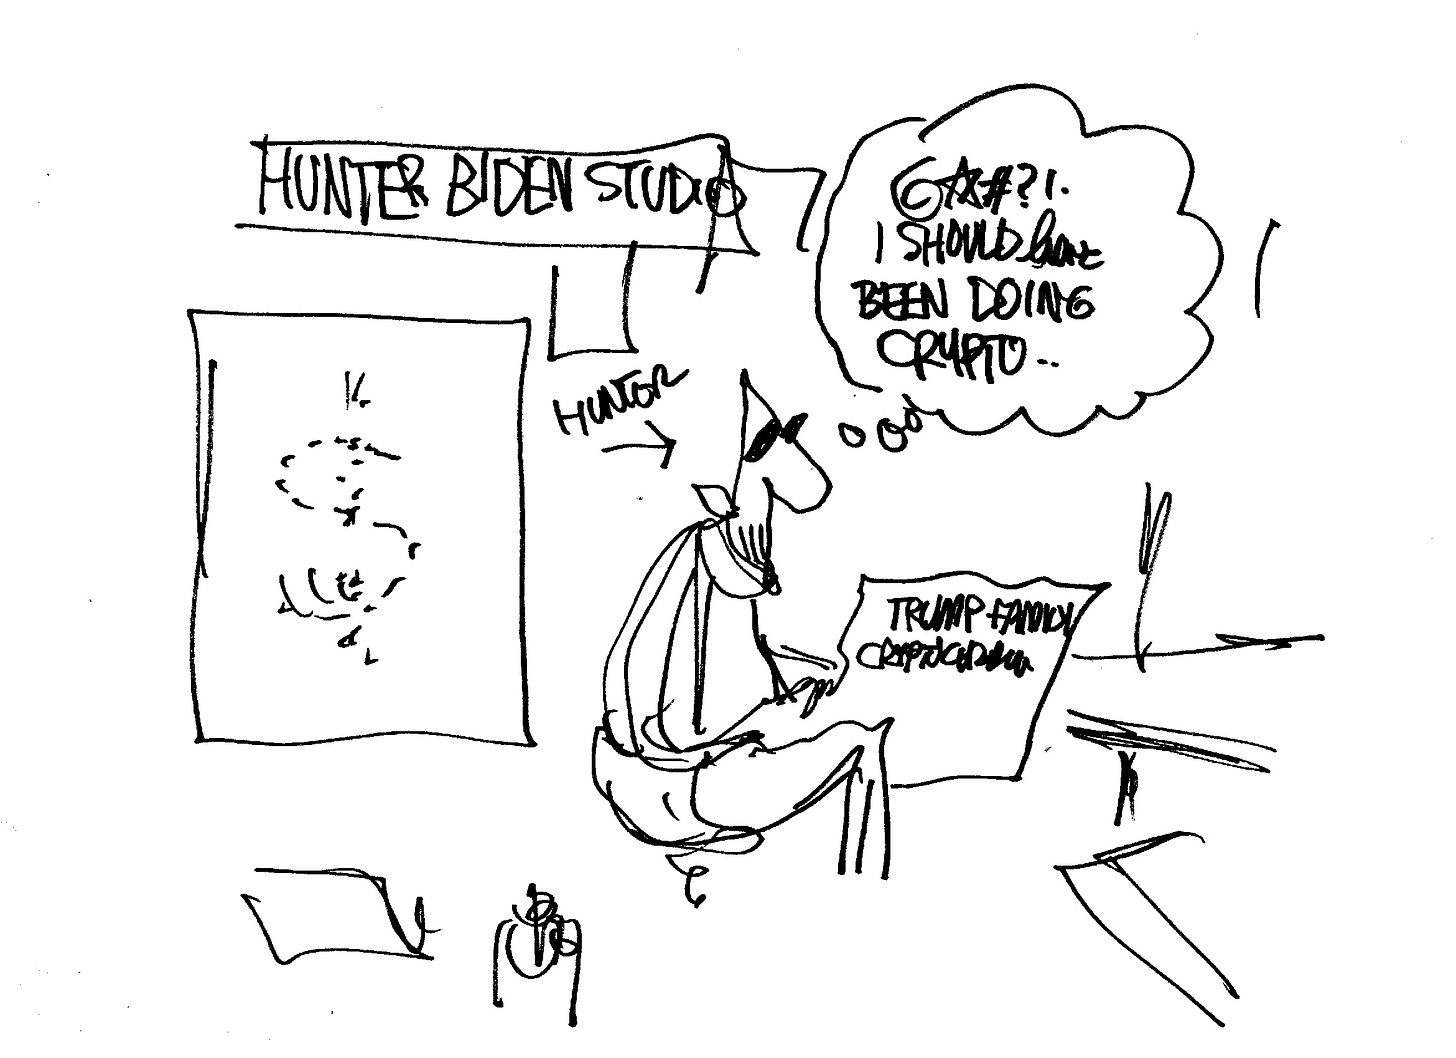 HUNTER BIDEN STUDIO
@☆#?!.
I SHOULD have
BEEN DOING
CRYPTO...
HUNTER
TRUMP FAMILY